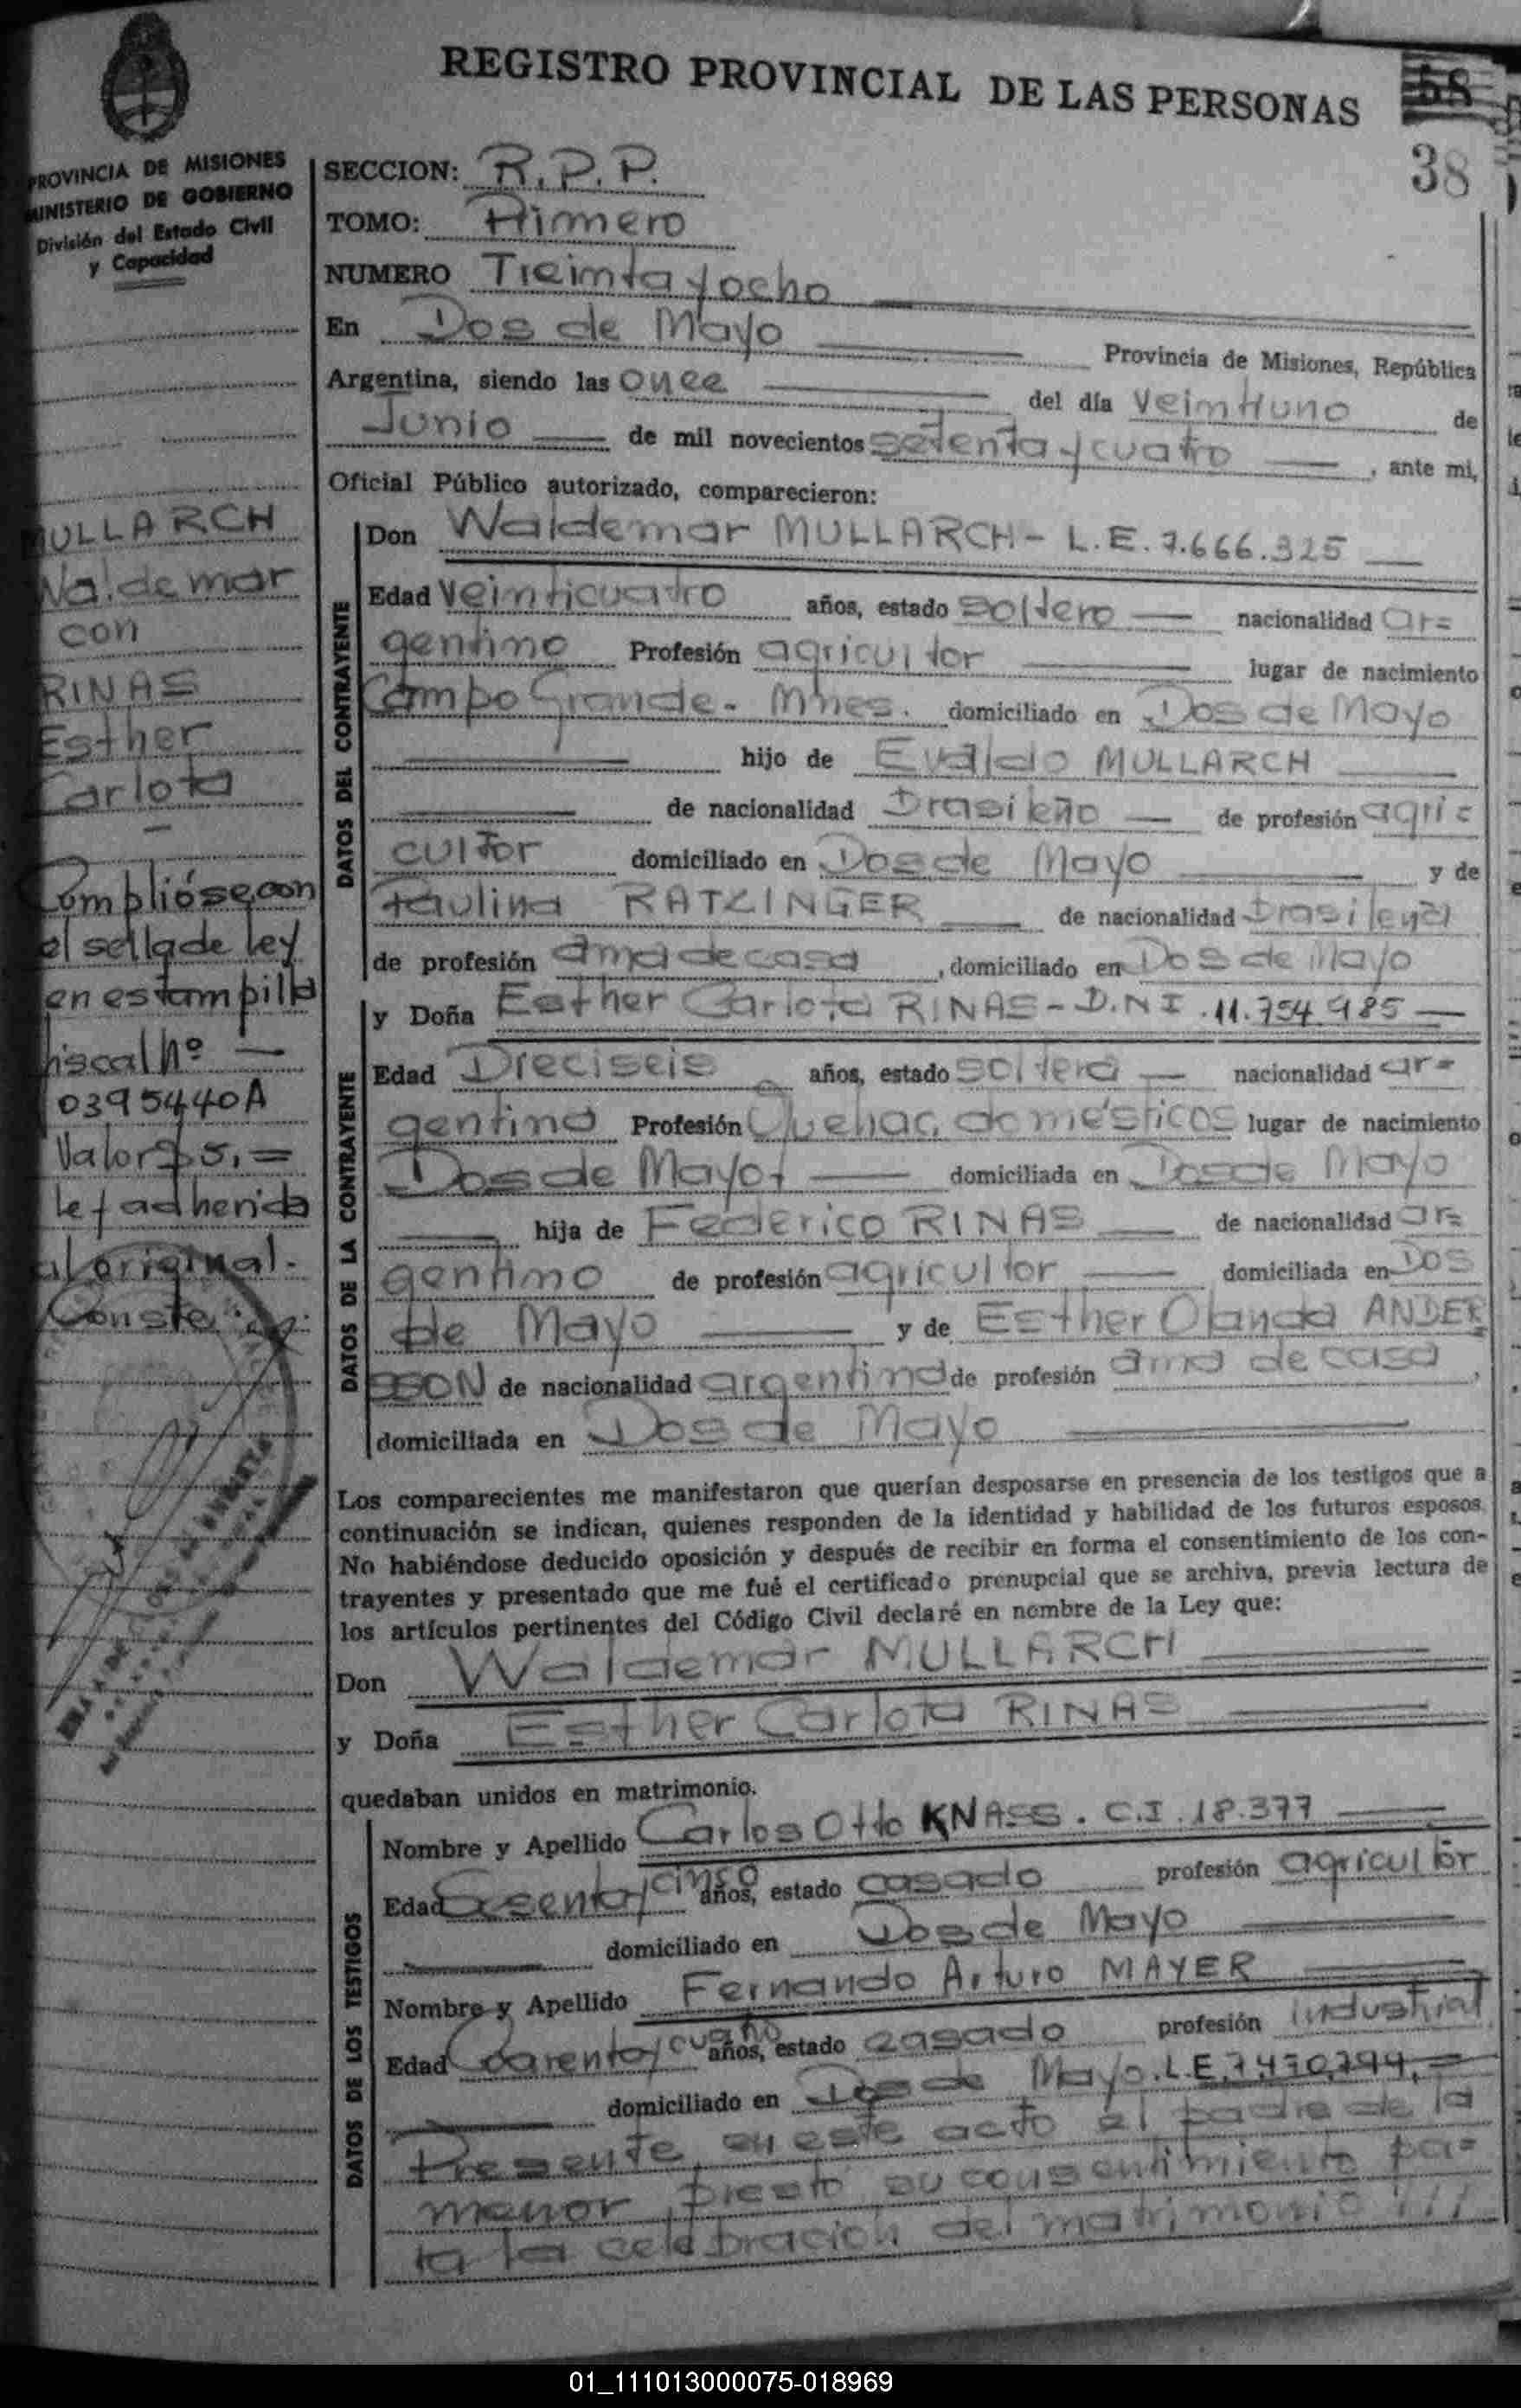 REGISTRO PROVINCIAL DE LAS PERSONAS
58
38
PROVINCIA DE MISIONES
MINISTERIO DE GOBIERNO
División del Estado Civil
y Capacidad
SECCION: R.P.P.
TOMO: Primero
NUMERO Treinta y ocho
En Dos de Mayo Provincia de Misiones, República
Argentina, siendo las once del día veintiuno de
Junio de mil novecientos setenta y cuatro, ante mi,
Oficial Público autorizado, comparecieron:
MULLARCH
Waldemar
con
RINAS
Esther
Carlota
Complióse con
el sellade ley
en estampilla
fiscal Nº
0395440A
Valor $ 5,=
adherida
al original.
Conste.
DATOS DEL CONTRAYENTE
Don Waldemar MULLARCH - L.E. 7.666.325
Edad Veinticuatro años, estado soltero nacionalidad ar=
gentino Profesión agricultor lugar de nacimiento
Campo Grande - Mnes. domiciliado en Dos de Mayo
hijo de Evaldo MULLARCH
de nacionalidad brasileño de profesión agri=
cultor domiciliado en Dos de Mayo y de
Paulina RATZINGER de nacionalidad brasileña
de profesión ama de casa, domiciliado en Dos de Mayo
DATOS DE LA CONTRAYENTE
y Doña Esther Carlota RINAS - D.N.I. 11.754.985
Edad Dieciseis años, estado soltera nacionalidad ar=
gentina Profesión Quehac. domésticos lugar de nacimiento
Dos de Mayo domiciliada en Dos de Mayo
hija de Federico RINAS de nacionalidad ar=
gentino de profesión agricultor domiciliada en Dos
de Mayo y de Esther Olanda ANDER
SSON de nacionalidad argentina de profesión ama de casa,
domiciliada en Dos de Mayo
Los comparecientes me manifestaron que querían desposarse en presencia de los testigos que a
continuación se indican, quienes responden de la identidad y habilidad de los futuros esposos.
No habiéndose deducido oposición y después de recibir en forma el consentimiento de los con-
trayentes y presentado que me fué el certificado prenupcial que se archiva, previa lectura de
los artículos pertinentes del Código Civil declaré en nombre de la Ley que:
Don Waldemar MULLARCH
y Doña Esther Carlota RINAS
quedaban unidos en matrimonio.
DATOS DE LOS TESTIGOS
Nombre y Apellido Carlos Otto KNASS. C.I. 18.377
Edad Sesenta y cinco años, estado casado profesión agricultor
domiciliado en Dos de Mayo
Nombre y Apellido Fernando Arturo MAYER
Edad Cuarenta y cuatro años, estado casado profesión industrial
domiciliado en Dos de Mayo. L.E. 7.470.794,=
Presente en este acto el padre de la
menor, prestó su consentimiento pa=
ra la celebración del matrimonio ///
01_111013000075-018969